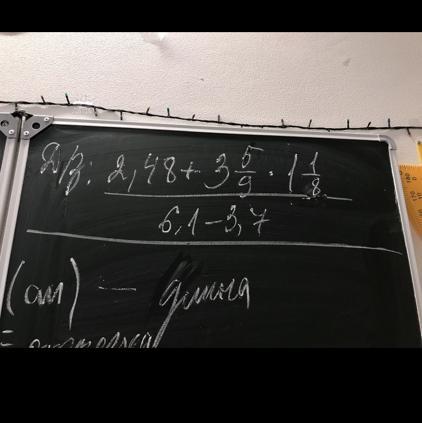 Д/З: (2,48 + 3 5/9 · 1 1/8) / (6,1 − 3,7)
(am) — длина